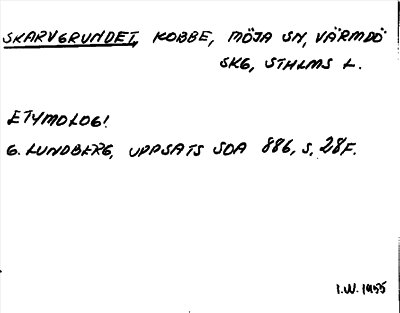 SKARVGRUNDET, KOBBE, MÖJA SN, VÄRMDÖ
SKG, STHLMS L.
ETYMOLOGI
G. LUNDBERG, UPPSATS SOA 886, S, 28F.
I.W. 1955